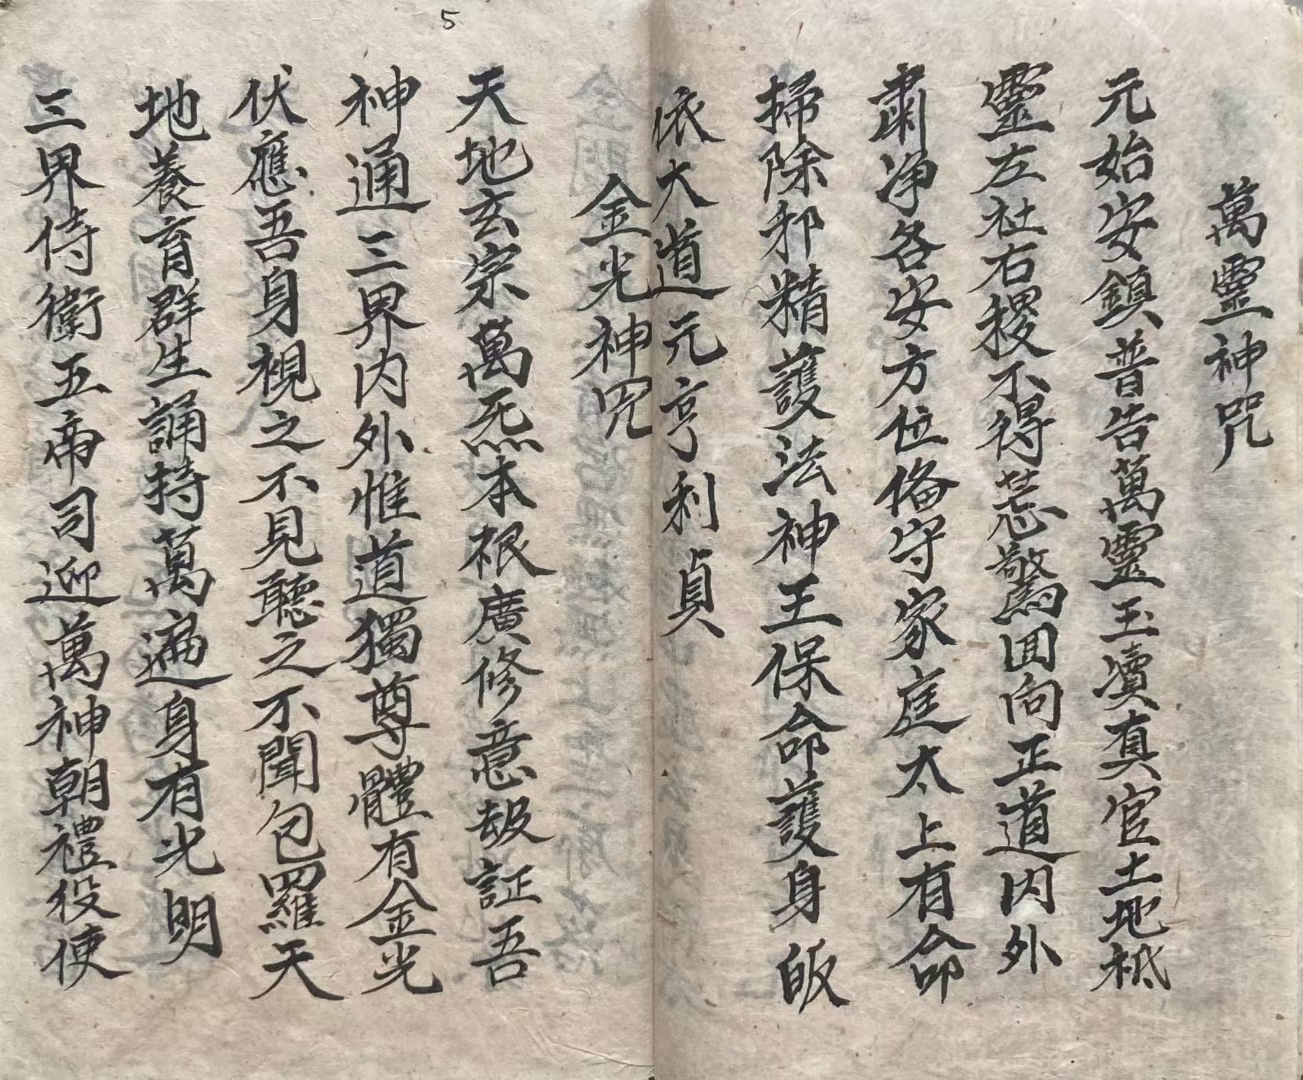 5
萬靈神咒
元始安鎮普告萬靈玉瀆真官土地袛
靈左社右稷不得忘驚囬向正道内外
肅净各安方位俻守家庭太上有命
掃除邪精護法神王保命護身皈
依大道元亨利貞
金光神咒
天地玄宗萬炁本根廣修意刼証吾
神通三界内外惟道獨尊體有金光
伏應吾身視之不見聽之不聞包羅天
地養育群生誦持萬遍身有光明
三界侍衛五帝司迎萬神朝禮役使